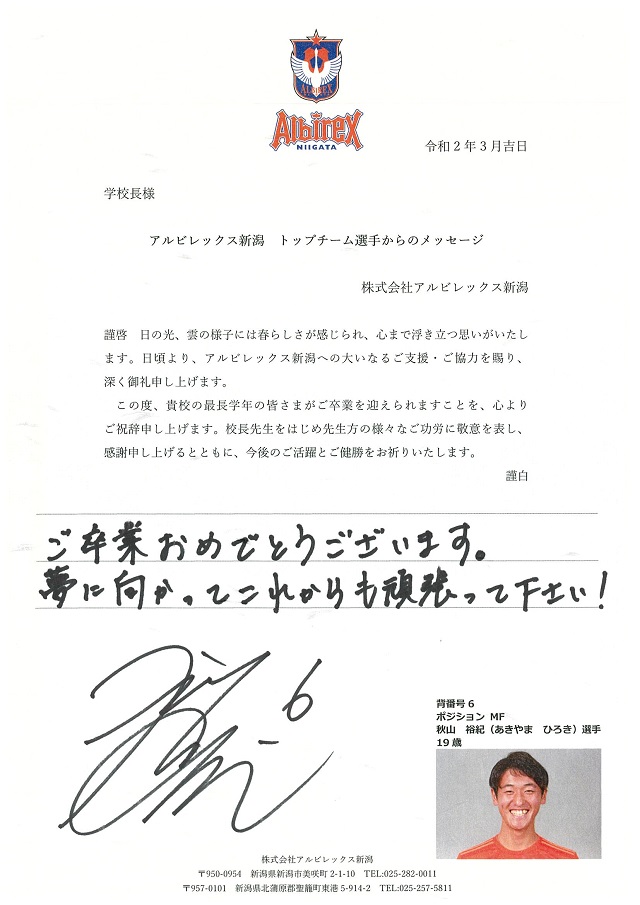 ALBIREX
Albirex
NIIGATA
令和2年3月吉日
学校長様
アルビレックス新潟　トップチーム選手からのメッセージ
株式会社アルビレックス新潟
謹啓　日の光、雲の様子には春らしさが感じられ、心まで浮き立つ思いがいたし
ます。日頃より、アルビレックス新潟への大いなるご支援・ご協力を賜り、
深く御礼申し上げます。
　この度、貴校の最長学年の皆さまがご卒業を迎えられますことを、心より
ご祝辞申し上げます。校長先生をはじめ先生方の様々なご功労に敬意を表し、
感謝申し上げるとともに、今後のご活躍とご健勝をお祈りいたします。
謹白
ご卒業おめでとうございます。
夢に向かってこれからも頑張って下さい！
6
背番号6
ポジション MF
秋山　裕紀（あきやま　ひろき）選手
19歳
株式会社アルビレックス新潟
〒950-0954　新潟県新潟市美咲町2-1-10　TEL:025-282-0011
〒957-0101　新潟県北蒲原郡聖籠町東港5-914-2　TEL:025-257-5811